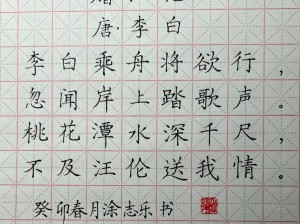 唐·李白
李白乘舟将欲行，
忽闻岸上踏歌声。
桃花潭水深千尺，
不及汪伦送我情。
癸卯春月涂志乐书